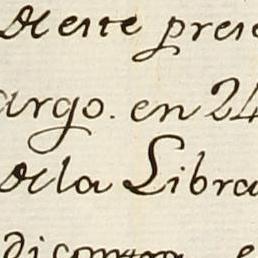 De este prese
argo. en 24
de la Libra